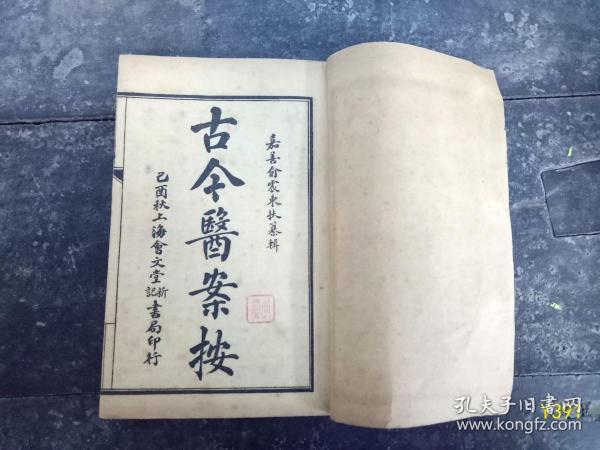 嘉善俞震東扶纂輯
古今醫案按
己酉秋上海會文堂新記書局印行
孔夫子旧书网
www.kongfz.com